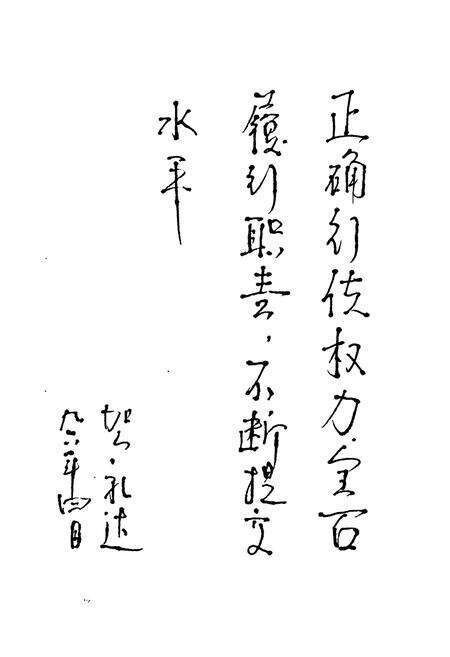 正确行使权力，全面
履行职责，不断提高
水平
礼达
九六年四月